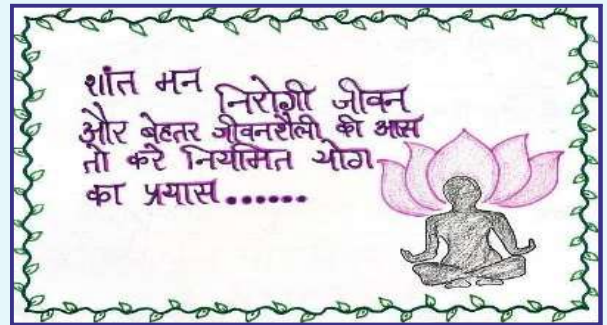 शांत मन निरोगी जीवन
और बेहतर जीवनशैली की आस
तो करे नियमित योग
का प्रयास......